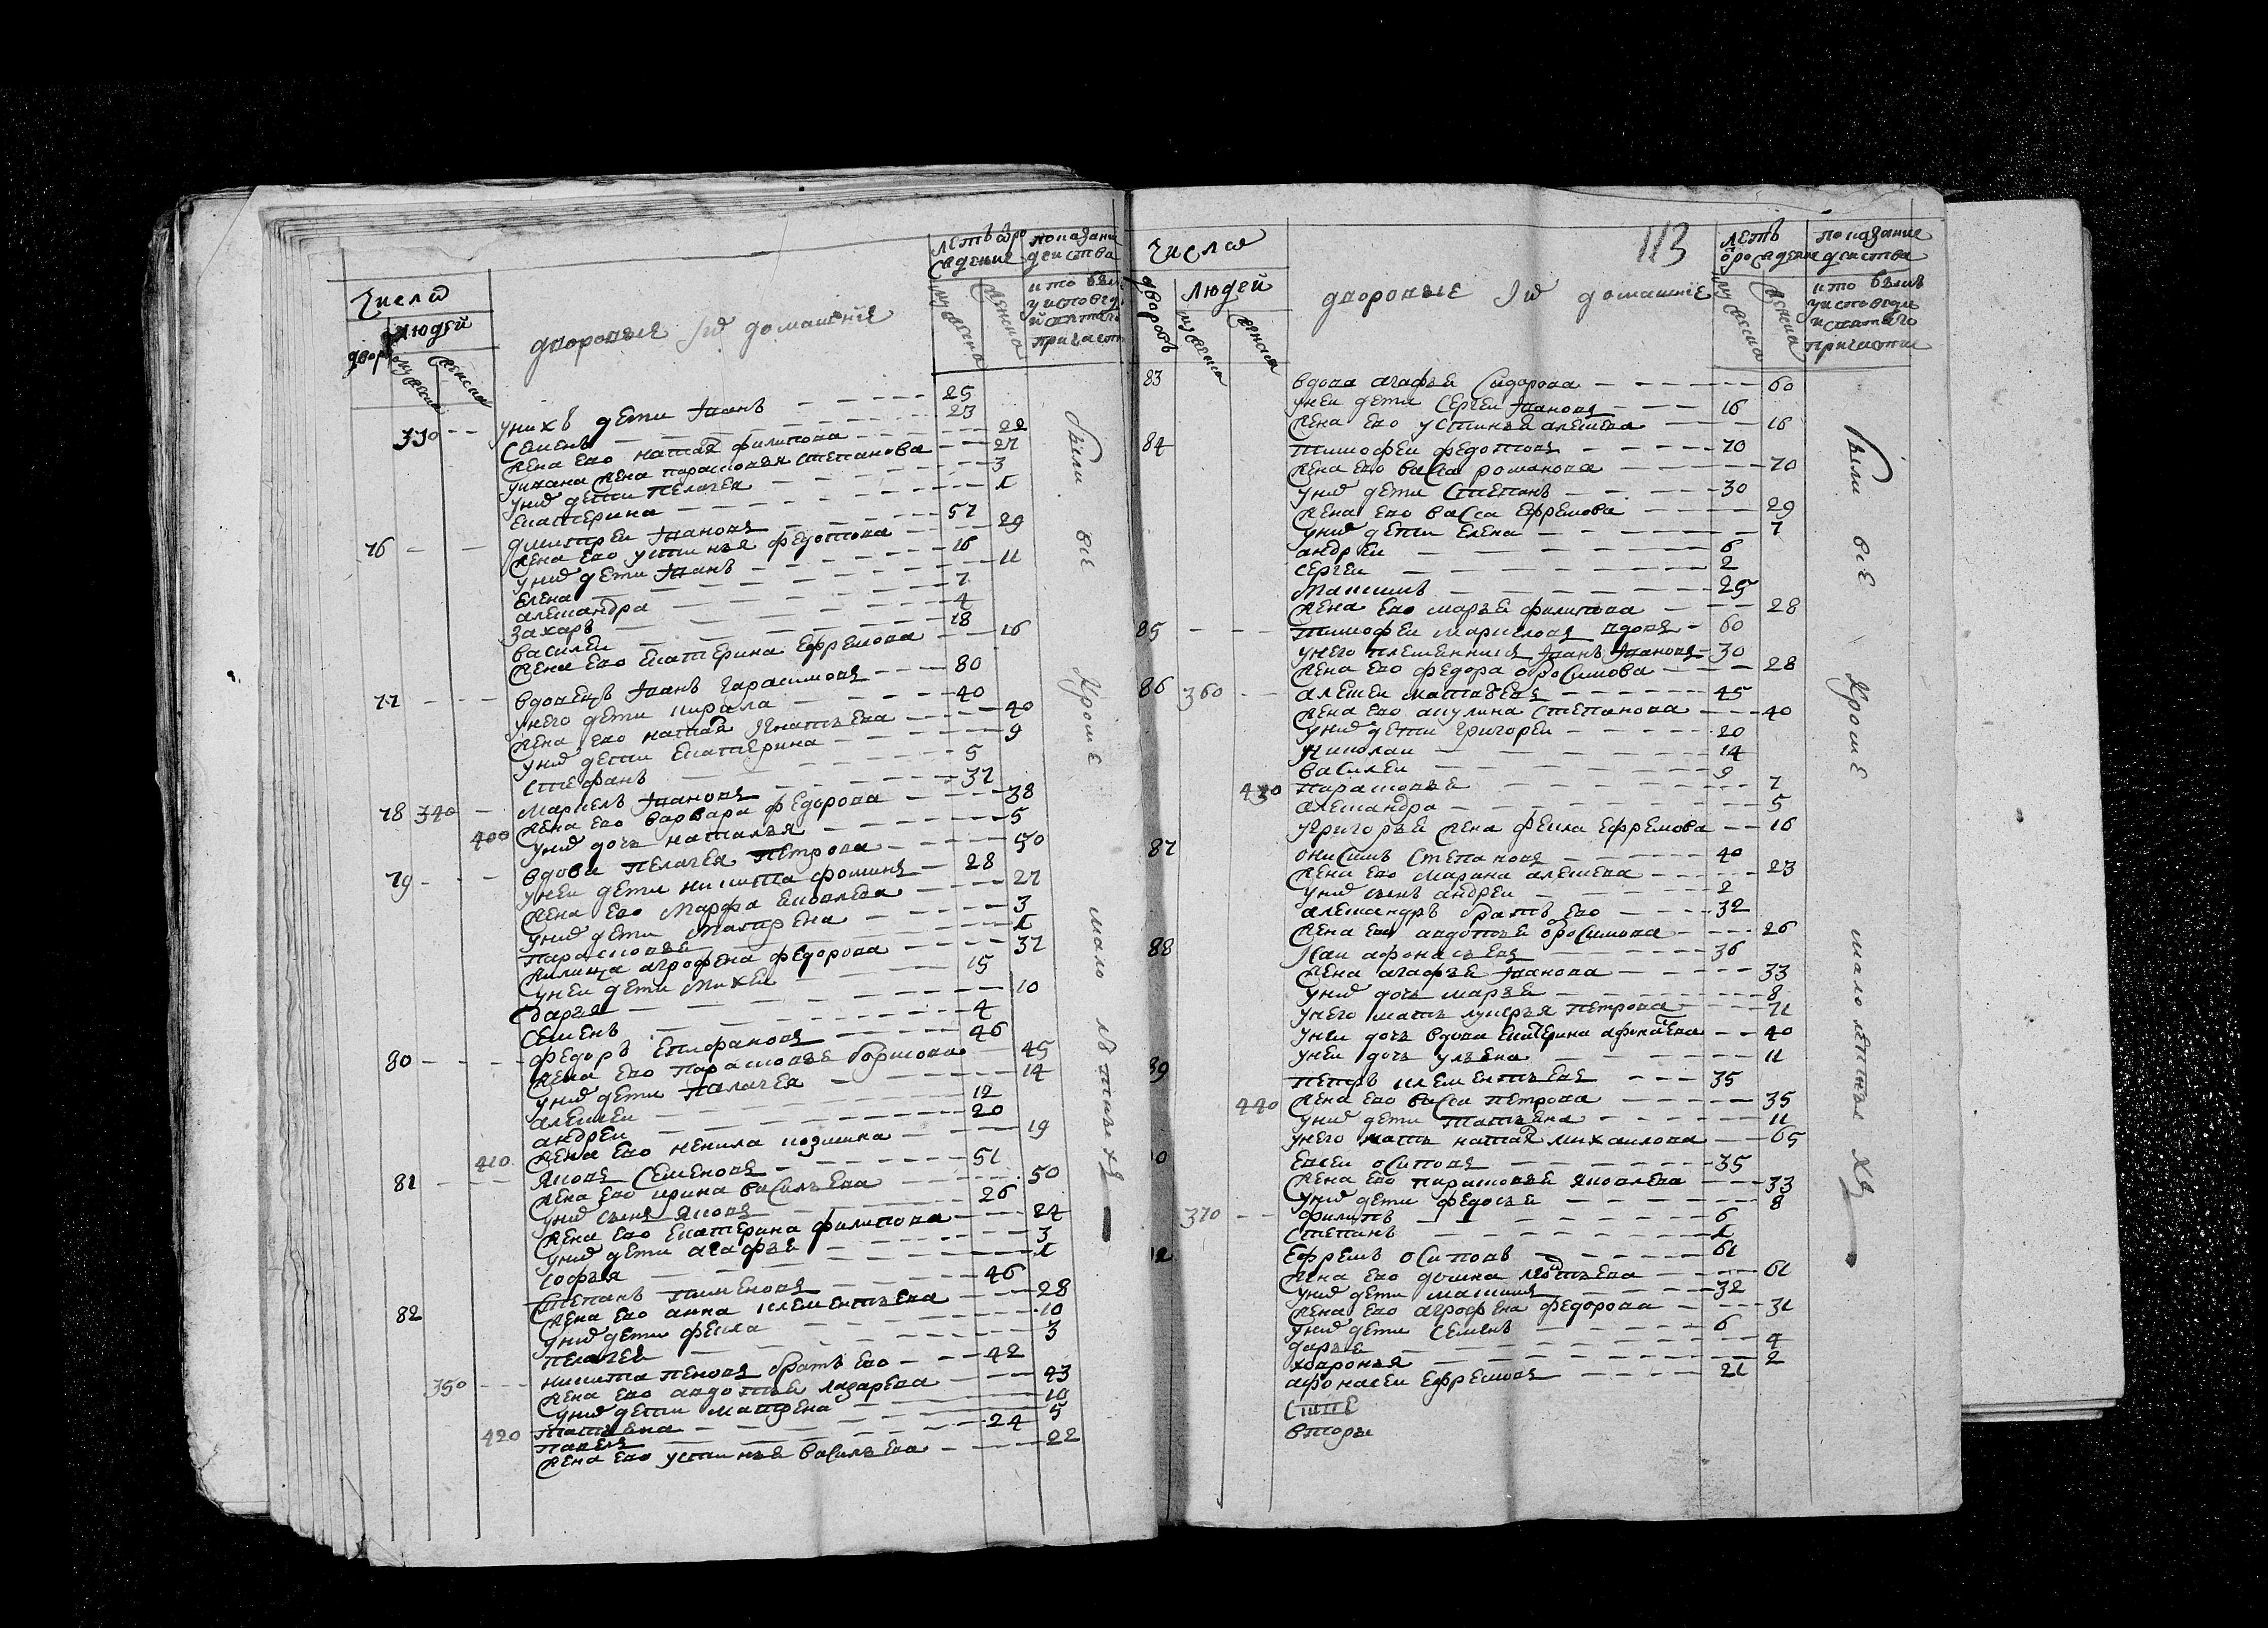 Числа
людей
мужеска
женска
дворовые их домашние
У них дети Иванъ 25
330 Семенъ 23
Жена ево наталя филипова 22
У ивана жена парасковя степанова 27
У них дети пелагея 3
Екатерина 1
76 дмитреи Ивановъ 57
Жена ево устинья федотова 29
У них дети Иванъ 16
Елена 11
александра 7
Захаръ 4
василеи 18
Жена ево Екатерина Ефремова 16
77 вдовецъ Иванъ гарасимовъ 80
У него дети кирила 40
Жена ево наталя Игнатьева 40
У них дети Екатерина 9
Стефанъ 5
78 340 Маркелъ Ивановъ 37
Жена ево варвара федорова 38
400 У них дочь наталья 5
79 вдова пелагея петрова 50
У неи дети никита фоминъ 28
Жена ево Марфа Ековлева 27
У них дети Матрена 3
Парасковья 1
Жилица агрофена федорова 37
У неи дети Михеи 15
дарья 10
Семенъ 4
80 федоръ Епифановъ 46
Жена ево парасковья борисова 45
У них дети палагея 14
алексеи 12
андреи 20
410 Жена ево ненила козмина 19
81 Яковъ Семеновъ 51
Жена ево ирина васильева 50
У них сынъ Яковъ 26
Жена ево Екатерина филипова 24
У них дети агафья 3
софья 1
82 Степанъ пименовъ 46
Жена ево анна клементьева 28
У них дети фекла 10
пелагея 3
350 никита пеновъ братъ ево 42
Жена ево авдотья лазарева 43
У них дети матрена 10
420 татьяна 5
павелъ 24
Жена ево устинья васильева 22
были все Кроме малолетныхъ
Числа
людей
дворовъ
мужеска
женска
дворовые их домашние
113
летъ от рождения
мужеска
женска
показание действа
кто былъ у исповеди и святаго причастия
83 вдова агафья Сидорова 60
У неи дети Сергеи Ивановъ 16
Жена ево устинья алексева 16
84 тимофеи федотовъ 70
Жена ево васса романова 70
У них дети Степанъ 30
Жена ево васса Ефремова 29
У них дети Елена 7
андреи 6
сергеи 2
Максимъ 25
Жена ево марья филипова 28
85 тимофеи маркеловъ вдовъ 60
У него племенникъ Иванъ Ивановъ 30
Жена ево федора обросимова 28
86 360 алексеи матвеевъ 45
Жена ево акулина степанова 40
У них дети григореи 20
николаи 14
василеи 9
430 парасковья 7
александра 5
У григорья жена фекла Ефремова 16
87 онисимъ степановъ 40
Жена ево марина алексева 23
У них сынъ андреи 2
александръ братъ ево 32
Жена ево авдотья обросимова 26
88 Иан афонасьевъ 36
Жена агафья Иванова 33
У них дочь марья 8
У него мать лукерья петрова 71
У неи дочь вдова Екатерина афонасева 40
У неи дочь ульяна 11
89 петръ клементьевъ 35
440 Жена ево васса петрова 35
У них дети татьяна 11
У него мать наталя михаилова 65
90 Евсеи осиповъ 35
Жена ево парасковья Яковлева 33
У них дети федосья 8
370 филипъ 6
степанъ 1
Ефремъ осиповъ 61
Жена ево домна леонтьева 61
У них дети максимъ 32
Жена ево агрофена федорова 31
У них дети Семенъ 6
дарья 4
ховронья 2
афонасеи Ефремовъ 21
вторы
были все Кроме малолетныхъ